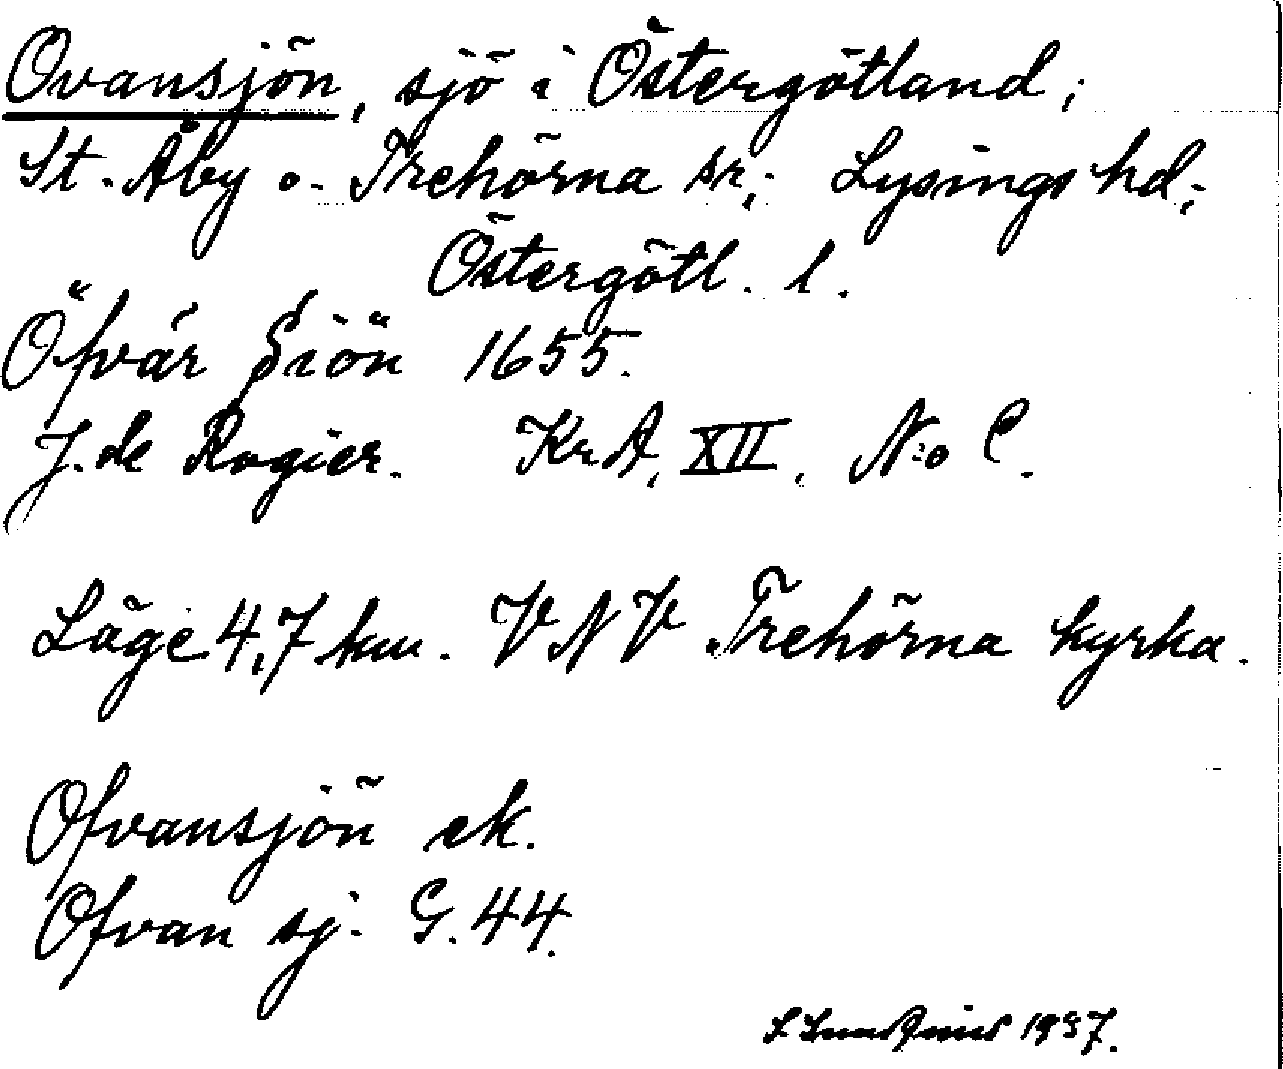 Ovansjön, sjö i Östergötland;
St. Åby o. Trehörna sr; Lysings hd;
Östergötl. l.
Öfvär Siön 1655.
J. de Rogier. KrA, XII, N:o C.
Läge 4,7 km. VNV Trehörna kyrka.
Ofvansjön ek.
Ofvan sj. G. 44.
1937.